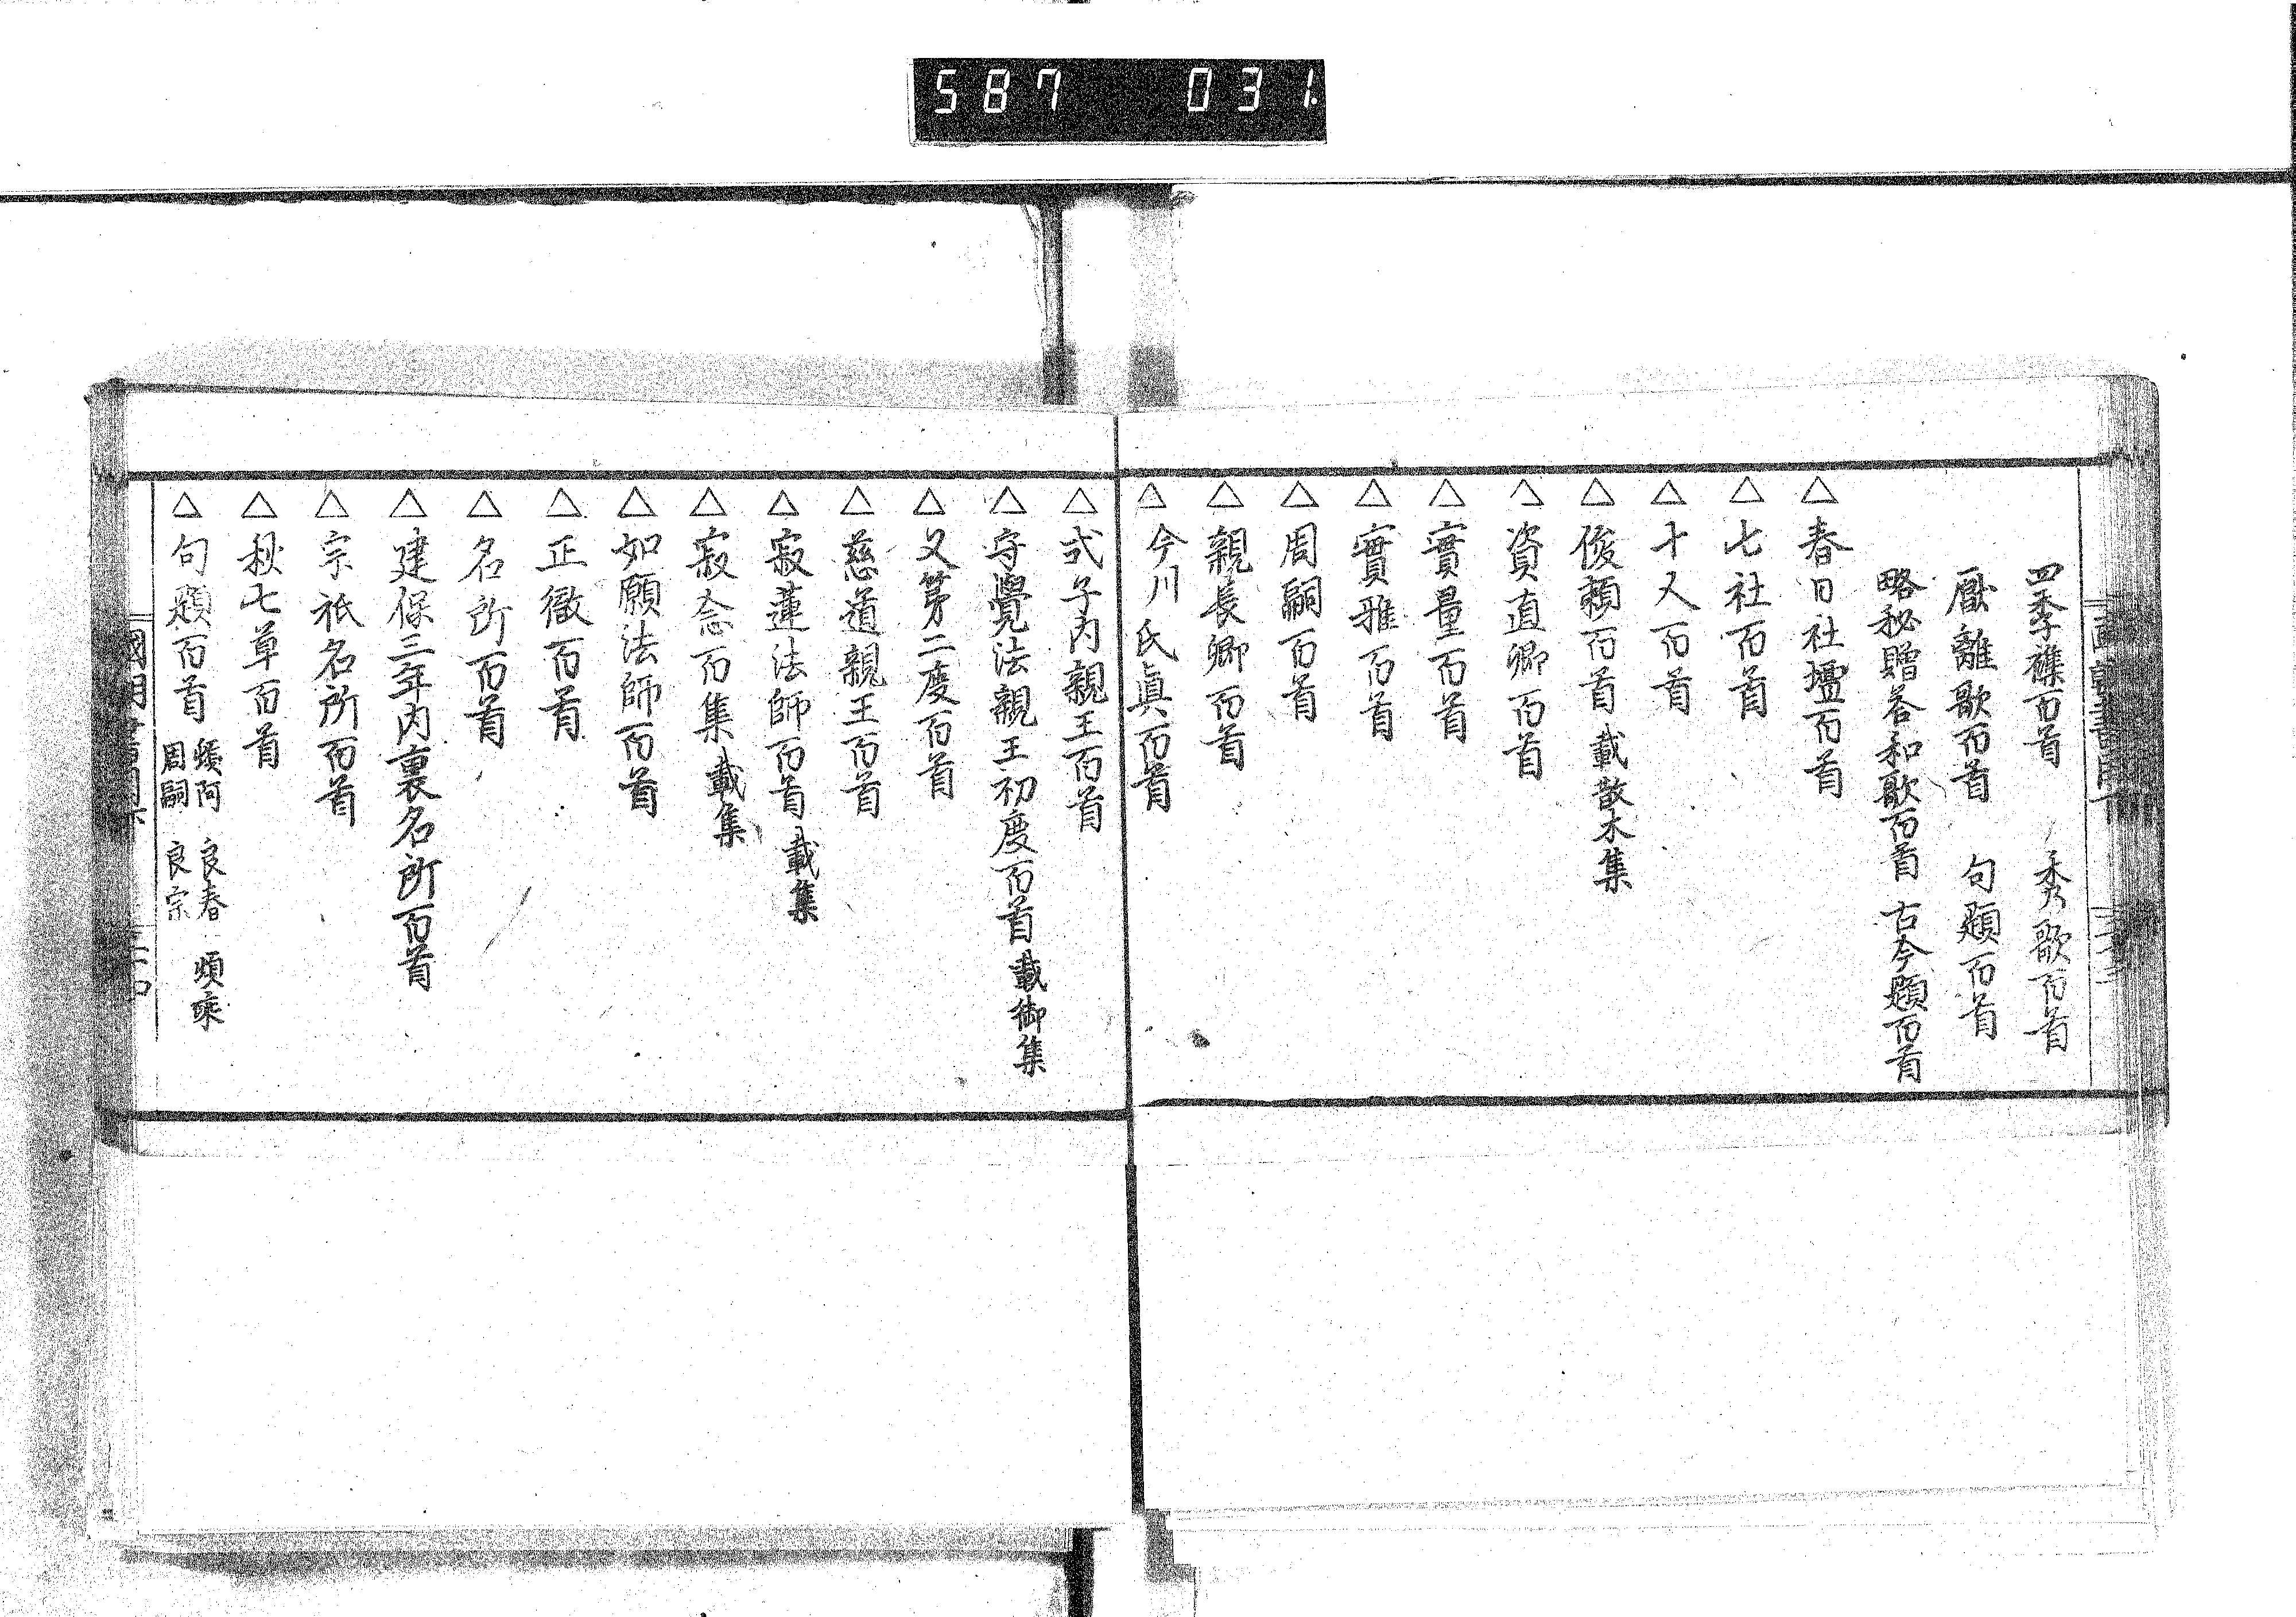 587 031.
四季雜百首 秀歌百首
厭離歌百首 句題百首
略秘贈答和歌百首 古今題百首
△春日社壇百首
△七社百首
△十人百首
△俊頼百首 載散木集
△資直卿百首
△實量百首
△實雅百首
△周嗣百首
△親長卿百首
△今川氏眞百首
△式子内親王百首
△守覺法親王初度百首 載御集
△又第二度百首
△慈道親王百首
△寂蓮法師百首 載集
△寂念百集 載集
△如願法師百首
△正徹百首
△名所百首
△建保三年内裏名所百首
△宗祇名所百首
△秋七草百首
△句題百首 頓阿 良春 頌乘
周嗣 良宗